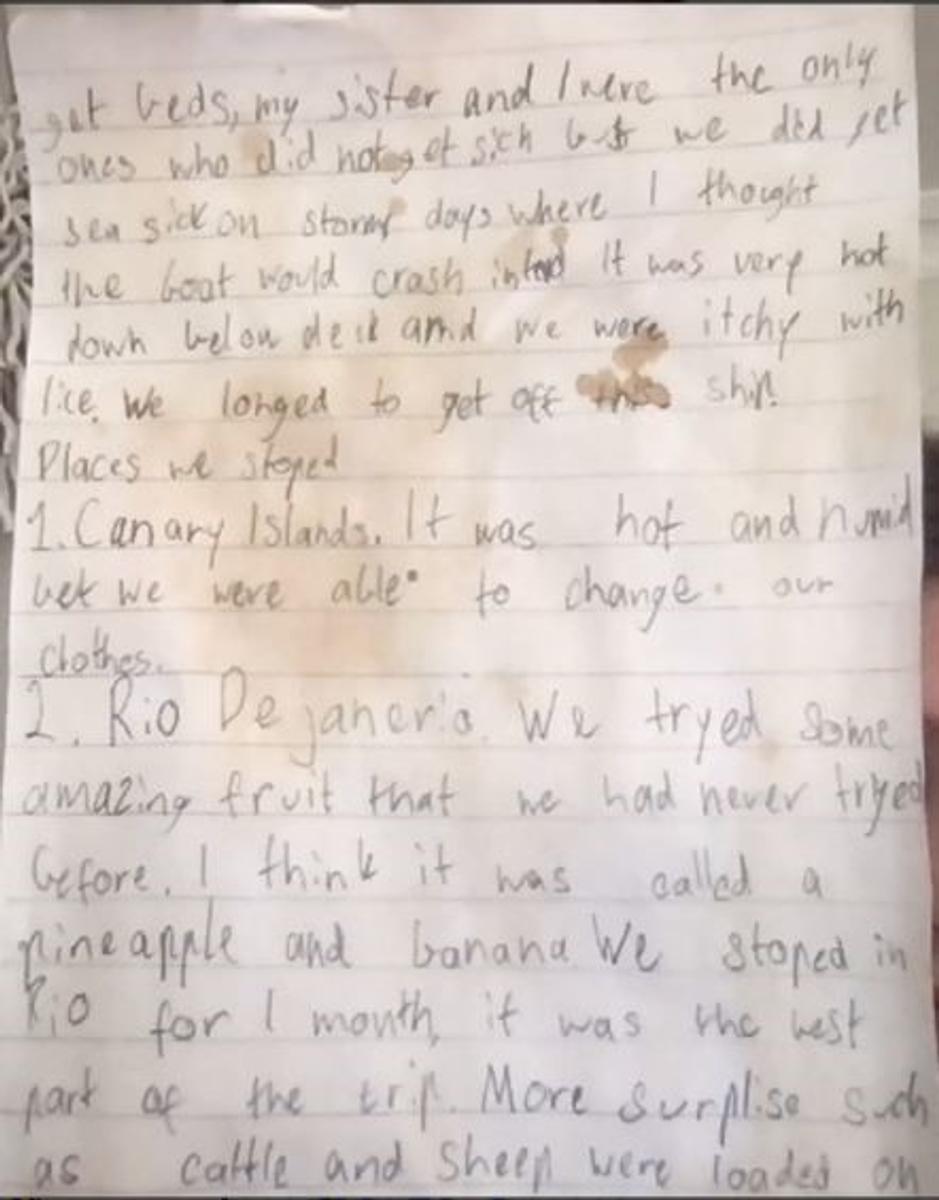 get beds, my sister and I were the only
ones who did not get sick but we did get
sea sick on stormy days where I thought
the boat would crash It was very hot
down below deck and we were itchy with
lice. We longed to get off this ship!
Places we stoped
1. Canary Islands. It was hot and humid
bet we were able to change our
clothes.
2. Rio De janerio. We tryed some
amazing fruit that we had never tryed
before. I think it was called a
pineapple and banana We stoped in
Rio for 1 month, it was the best
part of the trip. More surplise such
as cattle and sheep were loaded on